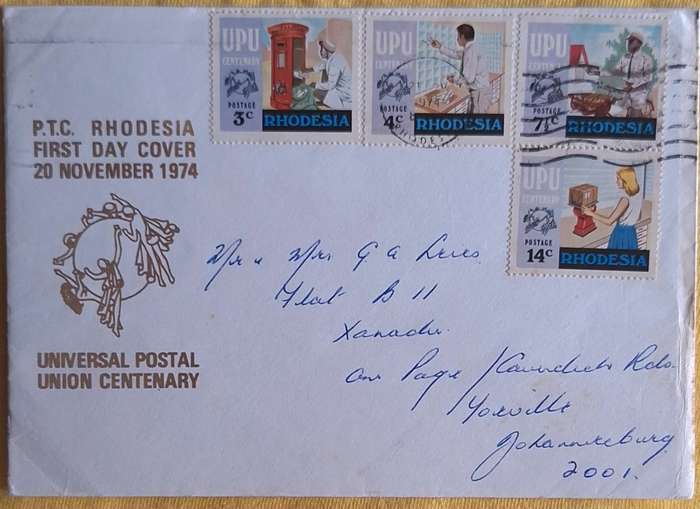 P.T.C. RHODESIA
FIRST DAY COVER
20 NOVEMBER 1974
UNIVERSAL POSTAL
UNION CENTENARY
UPU
CENTENARY
POSTAGE
3c
RHODESIA
UPU
CENTENARY
POSTAGE
4c
RHODESIA
UPU
CENTENARY
POSTAGE
7½c
RHODESIA
UPU
CENTENARY
POSTAGE
14c
RHODESIA
Mr & Mrs G A
Flat B 11
Xanadu
Cnr Page / Cavendish Rds
Yeoville
Johannesburg
2001.